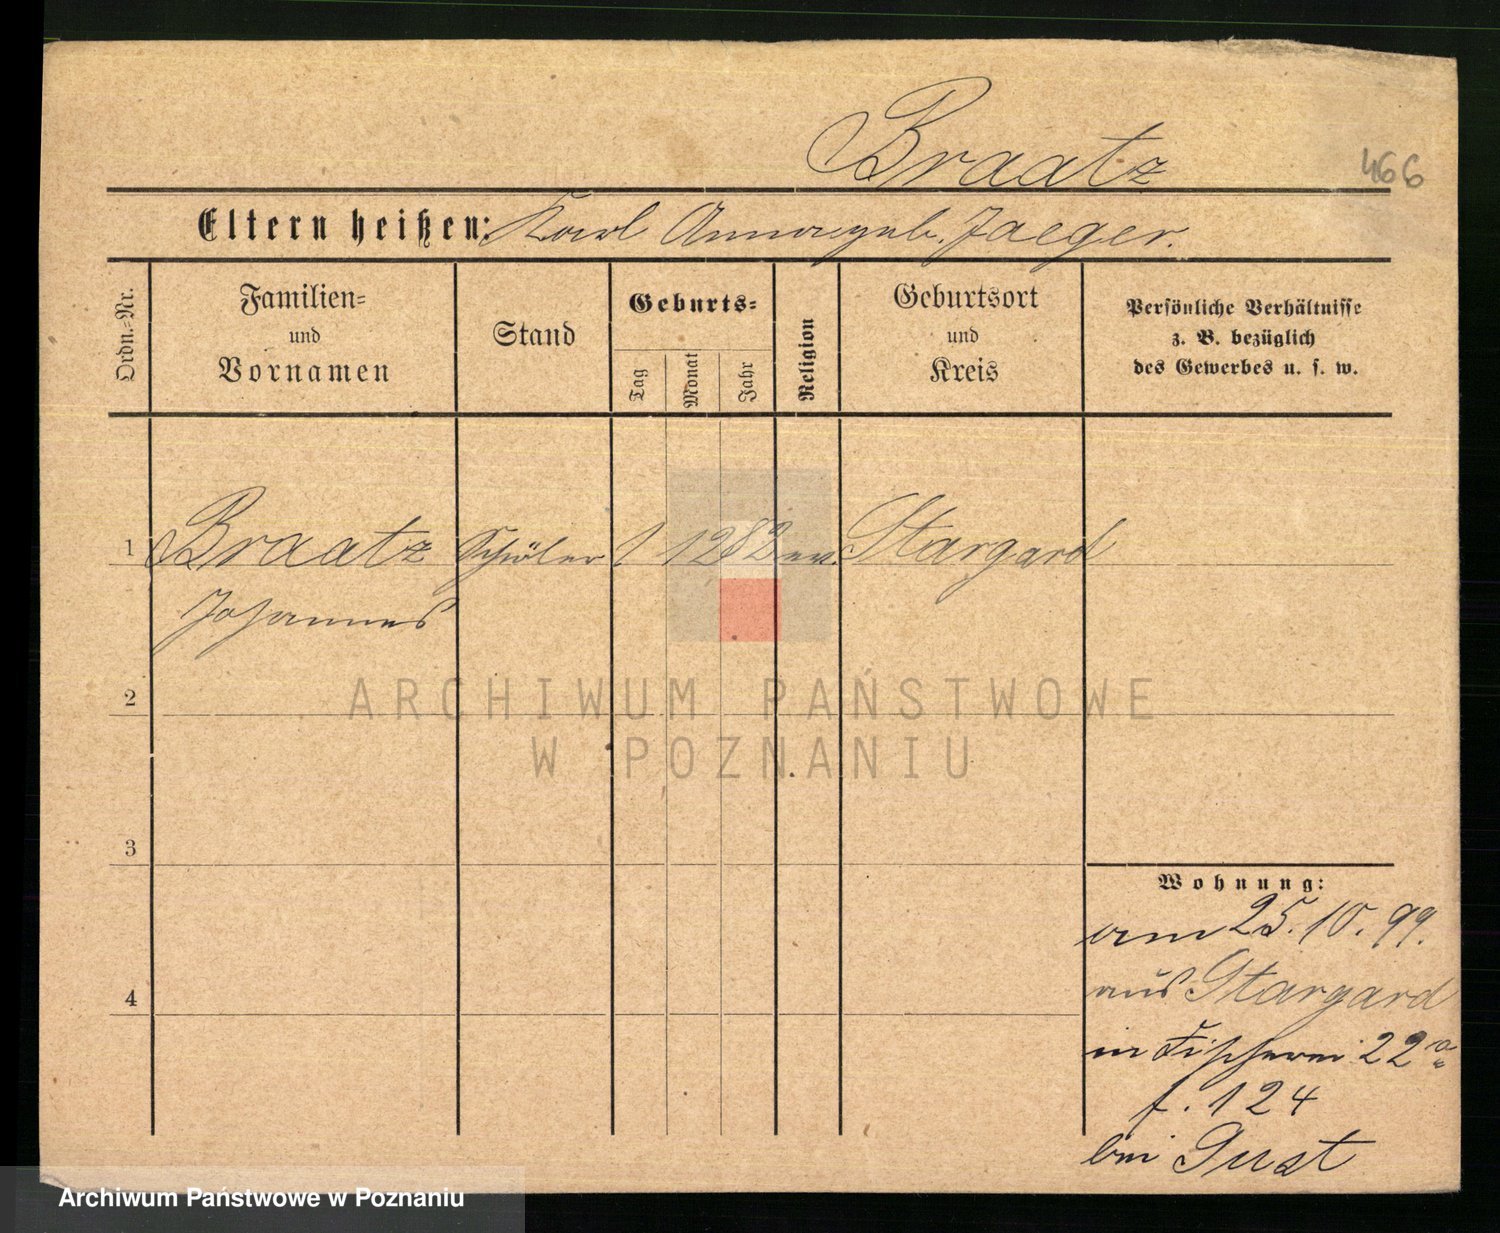 Braatz
466
Eltern heißen: Karl Anna geb. Jaeger.
Ordn.=Nr.
Familien=
und
Vornamen
Stand
Geburts=
Tag
Monat
Jahr
Religion
Geburtsort
und
Kreis
Persönliche Verhältnisse
z. B. bezüglich
des Gewerbes u. s. w.
1 Braatz Schüler 1 12 82 ev. Stargard
Johannes
2
ARCHIWUM PAŃSTWOWE
W POZNANIU
3
Wohnung:
am 25. 10. 99.
aus Stargard
4
in Fischerei 22a
f. 124
bei Gust
Archiwum Państwowe w Poznaniu